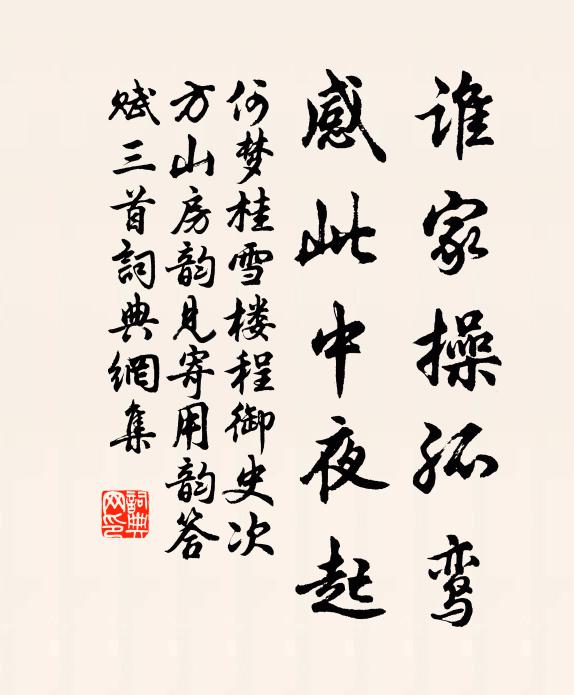 谁家操孤鸾
感此中夜起
何梦桂雪楼程御史次
方山房韵见寄用韵答
赋三首詞典網集
詞典
网印